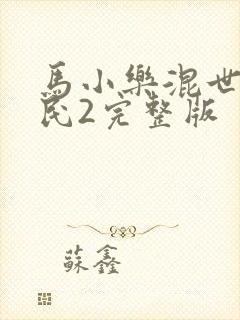 馬小樂混世
民2完整版
蘇鑫